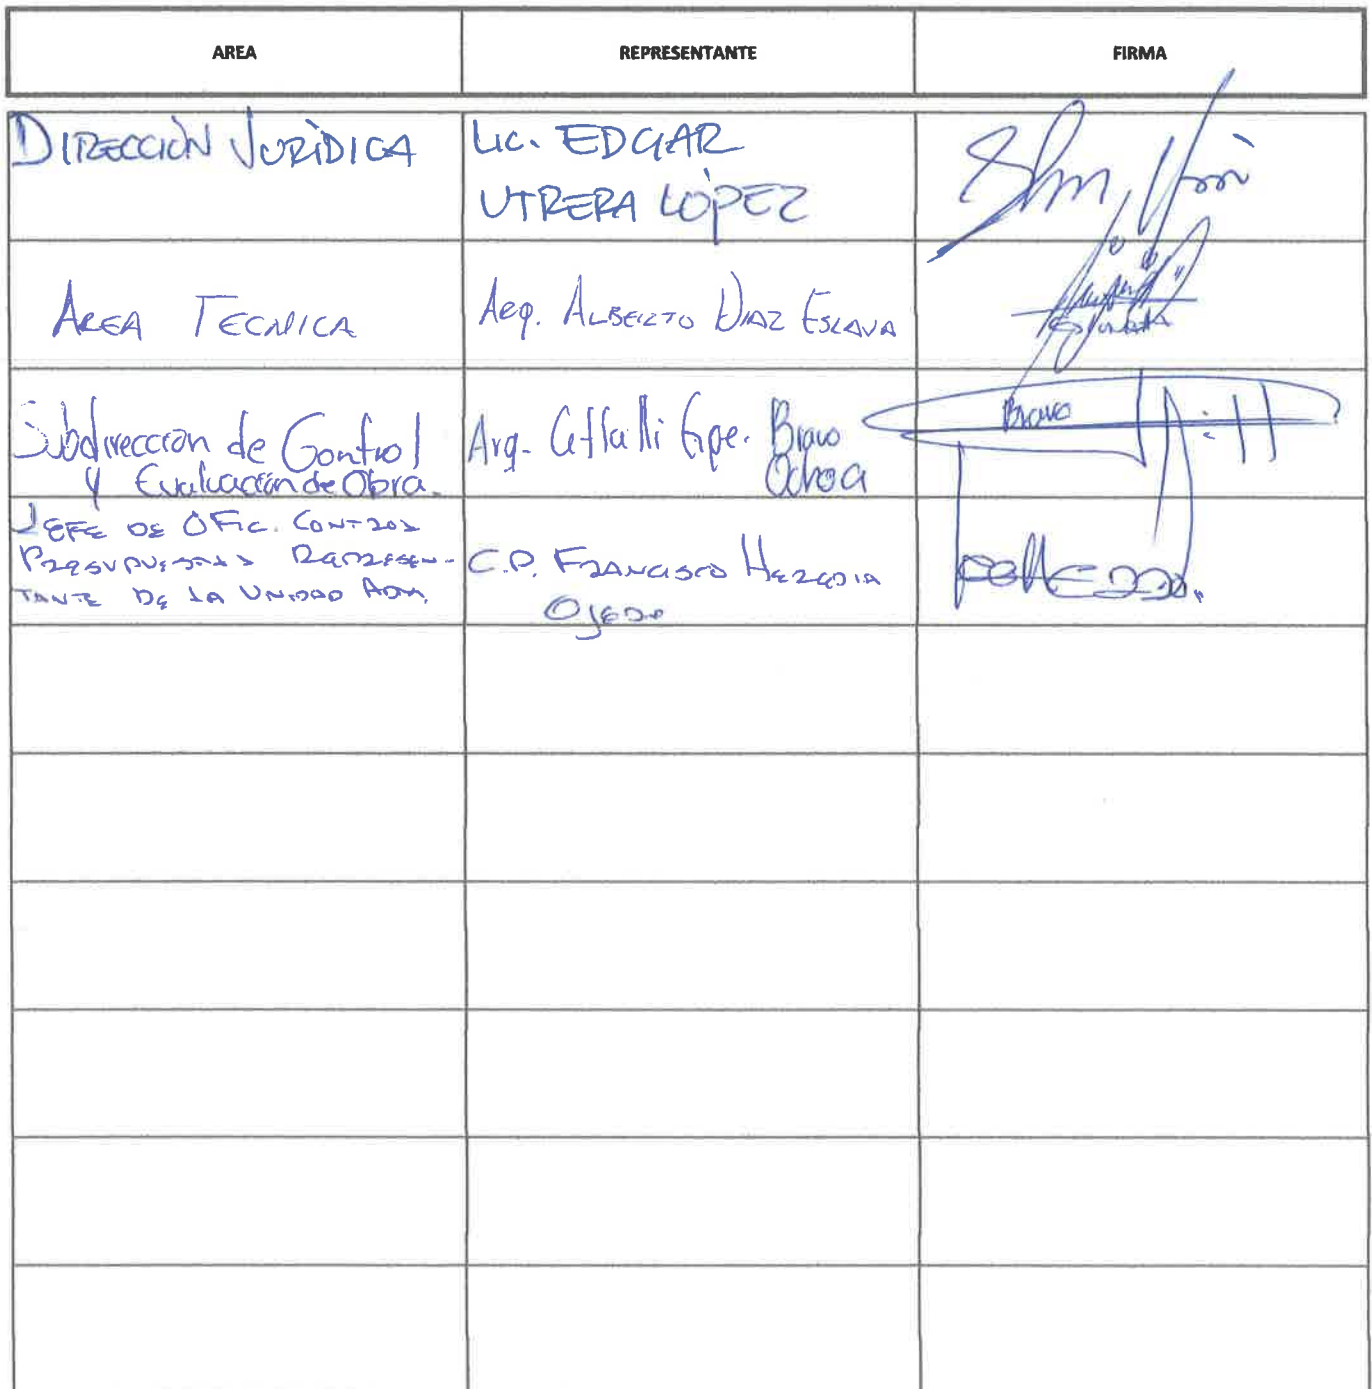 AREA REPRESENTANTE FIRMA
DIRECCIÓN JURÍDICA
LIC. EDGAR
UTRERA LÓPEZ
AREA TECNICA
Arq. ALBERTO DIAZ ESLAVA
Subdirección de Control
y Evaluación de Obra.
Arq. Citlalli Gpe. Bravo
Ochoa
Bravo
JEFE DE OFIC. CONTROL
PRESUPUESTAL REPRESEN-
TANTE DE LA UNIDAD ADM.
C.P. FRANCISCO HEREDIA
OJEDA